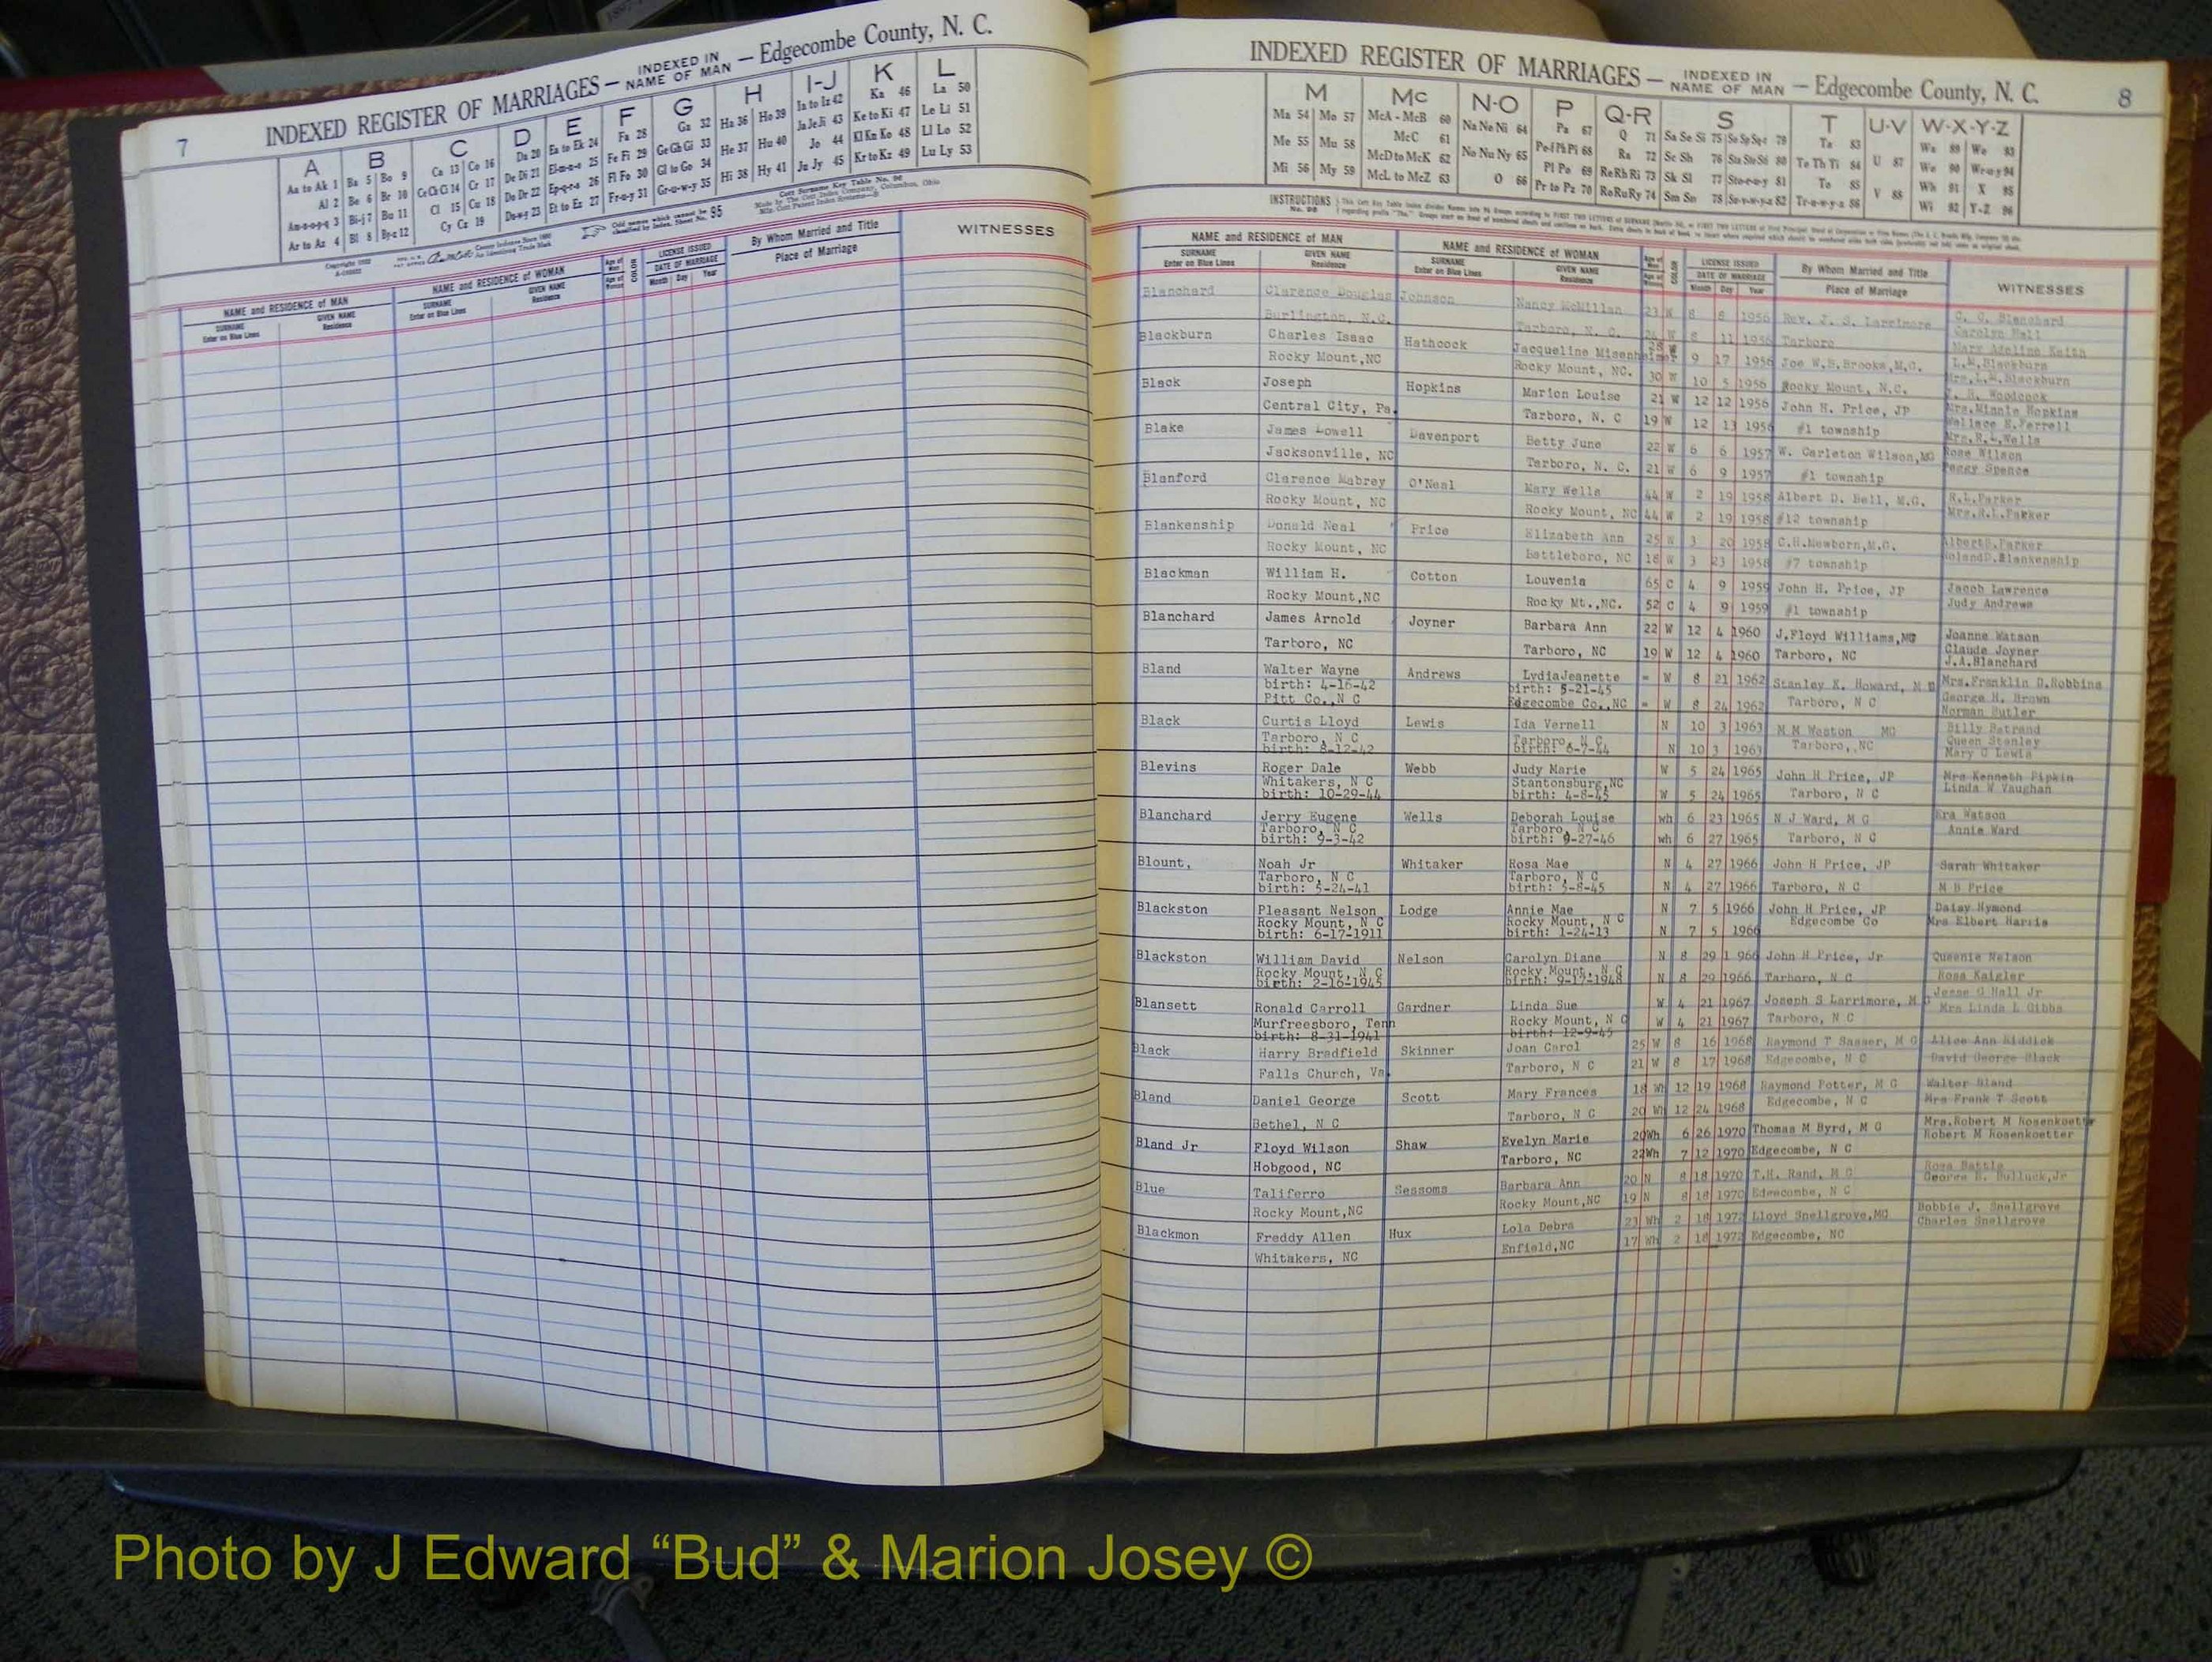 7
INDEXED REGISTER OF MARRIAGES — INDEXED IN NAME OF MAN — Edgecombe County, N. C.
A B C D E F G H I-J K L
Aa to Ak 1 Ba 5 Bo 9 Ca 13 Co 16 Da 20 Ea to Ek 24 Fa 28 Ga 32 Ha 36 Ho 39 Ia to Iz 42 Ka 46 La 50
Al 2 Be 6 Br 10 Ce Ch Ci 14 Cr 17 De Di 21 El-m-n-o 25 Fe Fi 29 Ge Gh Gi 33 He 37 Hu 40 Ja Je Ji 43 Ke to Ki 47 Le Li 51
Am-n-o-p-q 3 Bi-j 7 Bu 11 Cl 15 Cu 18 Do Dr 22 Ep-q-r-s 26 Fl Fo 30 Gl to Go 34 Hi 38 Hy 41 Jo 44 Kl Kn Ko 48 Ll Lo 52
Ar to Az 4 Bl 8 By-z 12 Cy Cz 19 Du-w-y 23 Et to Ez 27 Fr-u-y 31 Gr-u-w-y 35 Ju Jy 45 Kr to Kz 49 Lu Ly 53
NAME and RESIDENCE of MAN NAME and RESIDENCE of WOMAN COLOR LICENSE ISSUED DATE OF MARRIAGE By Whom Married and Title Place of Marriage WITNESSES
SURNAME Enter on Blue Lines GIVEN NAME Residence SURNAME Enter on Blue Lines GIVEN NAME Residence Month Day Year
INDEXED REGISTER OF MARRIAGES — INDEXED IN NAME OF MAN — Edgecombe County, N. C.
8
M Mc N-O P Q-R S T U-V W-X-Y-Z
Ma 54 Mo 57 McA - McB 60 Na Ne Ni 64 Pa 67 Q 71 Sa Se Si 75 Ta 83 Wa 89
Me 55 Mu 58 McC 61 No Nu Ny 65 Pe-f Ph Pi 68 Ra 72 Sc Sh 76 Te Th Ti 84 U 87 We 90
Mi 56 My 59 McD to McK 62 O 66 Pl Po 69 Re Rh Ri 73 Sk Sl 77 To 85 V 88 Wh 91 X 95
McL to McZ 63 Pr to Pz 70 Ro Ru Ry 74 Sm Sn 78 Wi 92 Y-Z 96
NAME and RESIDENCE of MAN NAME and RESIDENCE of WOMAN LICENSE ISSUED DATE OF MARRIAGE By Whom Married and Title Place of Marriage WITNESSES
SURNAME Enter on Blue Lines GIVEN NAME Residence SURNAME Enter on Blue Lines GIVEN NAME Residence Month Day Year
Blanchard Clarence Douglas Johnson Nancy McMillan 23 W 8 8 1956 Rev. J. S. Larrimore C. C. Blanchard
Burlington, N.C. Tarboro, N. C. 24 W 8 11 1956 Tarboro Carolyn Hall
Mary Adeline Keith
Blackburn Charles Isaac Hathcock Jacqueline Misenheimer 28 W 9 17 1956 Joe W.S.Brooks,M.G. L.M.Blackburn
Rocky Mount,NC Rocky Mount, NC. 30 W 10 5 1956 Rocky Mount, N.C. Mrs.L.M.Blackburn
Woodcock
Black Joseph Hopkins Marion Louise 21 W 12 12 1956 John H. Price, JP Mrs.Minnie Hopkins
Central City, Pa. Tarboro, N. C 19 W 12 13 1956 #1 township Wallace E.Ferrell
Mrs.R.L.Wells
Blake James Lowell Davenport Betty June 22 W 6 6 1957 W. Carleton Wilson,MG Rose Wilson
Jacksonville, NC Tarboro, N. C. 21 W 6 9 1957 #1 township Peggy Spence
Blanford Clarence Mabrey O'Neal Mary Wells 44 W 2 19 1958 Albert D. Bell, M.G. R.L.Parker
Rocky Mount, NC Rocky Mount, NC 44 W 2 19 1958 #12 township Mrs.R.L.Parker
Blankenship Donald Neal Price Elizabeth Ann 25 W 3 20 1958 C.H.Newborn,M.G. AlbertS.Parker
Rocky Mount, NC Battleboro, NC 18 W 3 23 1958 #7 township RolandD.Blankenship
Blackman William H. Cotton Louvenia 65 C 4 9 1959 John H. Price, JP Jacob Lawrence
Rocky Mount,NC Rocky Mt.,NC. 52 C 4 9 1959 #1 township Judy Andrews
Blanchard James Arnold Joyner Barbara Ann 22 W 12 4 1960 J.Floyd Williams,MG Joanne Watson
Tarboro, NC Tarboro, NC 19 W 12 4 1960 Tarboro, NC Claude Joyner
J.A.Blanchard
Bland Walter Wayne Andrews LydiaJeanette - W 8 21 1962 Stanley K. Howard, M G Mrs.Franklin D.Robbins
birth: 4-16-42 birth: 5-21-45 George H. Brown
Pitt Co.,N C Edgecombe Co.,NC - W 8 24 1962 Tarboro, N C Norman Butler
Black Curtis Lloyd Lewis Ida Vernell N 10 3 1963 M M Weston MG Billy Batrand
Tarboro, N C Tarboro, N C Queen Stanley
birth: 8-12-42 birth: 6-7-44 N 10 3 1963 Tarboro, NC Mary G Lewis
Blevins Roger Dale Webb Judy Marie W 5 24 1965 John H Price, JP Mrs Kenneth Pipkin
Whitakers, N C Stantonsburg,NC Linda W Vaughan
birth: 10-29-44 birth: 4-8-45 W 5 24 1965 Tarboro, N C
Blanchard Jerry Eugene Wells Deborah Louise wh 6 23 1965 N J Ward, M G Era Watson
Tarboro, N C Tarboro, N C Annie Ward
birth: 9-3-42 birth: 9-27-46 wh 6 27 1965 Tarboro, N C
Blount, Noah Jr Whitaker Rosa Mae N 4 27 1966 John H Price, JP Sarah Whitaker
Tarboro, N C Tarboro, N C
birth: 5-24-41 birth: 5-8-45 N 4 27 1966 Tarboro, N C M B Price
Blackston Pleasant Nelson Lodge Annie Mae N 7 5 1966 John H Price, JP Daisy Hymond
Rocky Mount, N C Rocky Mount, N C Edgecombe Co Mrs Elbert Harris
birth: 6-17-1911 birth: 1-24-13 N 7 5 1966
Blackston William David Nelson Carolyn Diane N 8 29 1 966 John H Price, Jr Queenie Nelson
Rocky Mount, N C Rocky Mount, N C
birth: 2-16-1945 birth: 9-17-1948 N 8 29 1966 Tarboro, N C Rosa Kaigler
Blansett Ronald Carroll Gardner Linda Sue W 4 21 1967 Joseph S Larrimore, M G Jesse G Hall Jr
Murfreesboro, Tenn Rocky Mount, N C W 4 21 1967 Tarboro, N C Mrs Linda L Gibbs
birth: 8-31-1941 birth: 12-9-45
Black Harry Bradfield Skinner Joan Carol 25 W 8 16 1968 Raymond T Sasser, M G Alice Ann Kiddick
Falls Church, Va. Tarboro, N C 21 W 8 17 1968 Edgecombe, N C David George Black
Bland Daniel George Scott Mary Frances 18 Wh 12 19 1968 Raymond Potter, M G Walter Bland
Bethel, N C Tarboro, N C 20 Wh 12 24 1968 Edgecombe, N C Mrs Frank T Scott
Bland Jr Floyd Wilson Shaw Evelyn Marie 20Wh 6 26 1970 Thomas M Byrd, M G Mrs.Robert M Rosenkoetter
Hobgood, NC Tarboro, NC 22Wh 7 12 1970 Edgecombe, N C Robert M Rosenkoetter
Blue Taliferro Sessoms Barbara Ann 20 N 8 18 1970 T.H. Rand, M G Rosa Battle
Rocky Mount,NC Rocky Mount,NC 19 N 8 18 1970 Edgecombe, N C George E. Bulluck,Jr
Blackmon Freddy Allen Hux Lola Debra 23 Wh 2 18 1972 Lloyd Snellgrove,MG Bobbie J. Snellgrove
Whitakers, NC Enfield,NC 17 Wh 2 18 1972 Edgecombe, NC Charles Snellgrove
Photo by J Edward “Bud” & Marion Josey ©